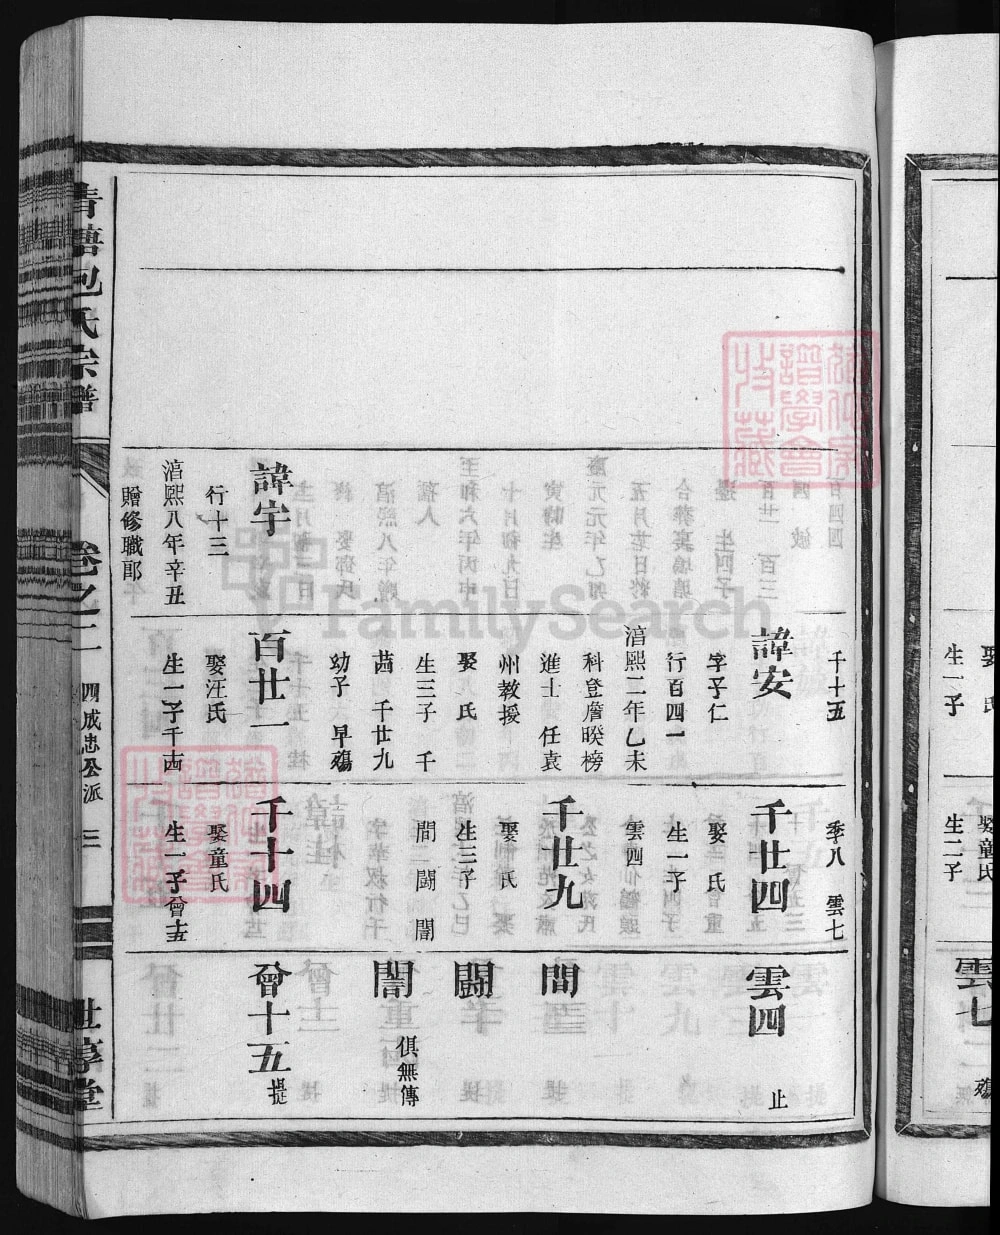 千十五
諱安
字子仁
行百四一
淳熙二年乙未
科登詹暌榜
進士任袁
州教授
娶 氏
生三子 千
茜 千廿九
幼子 早殤
季八 雲七
千廿四
娶 氏
生一子
雲四
千廿九
娶 氏
生三子
間 鬪 闇
雲四 止
間
鬪
闇 俱無傳
諱宇
行十三
淳熙八年辛丑
贈修職郎
百廿一
娶汪氏
生一子千
千十四
娶童氏
生一子曾十五
曾十五 提
青塘包氏宗譜
卷之二
四成忠公派
三
世享堂
娶 氏
生一子
娶童氏
生二子
雲七 殤
譜學會
收藏
FamilySearch